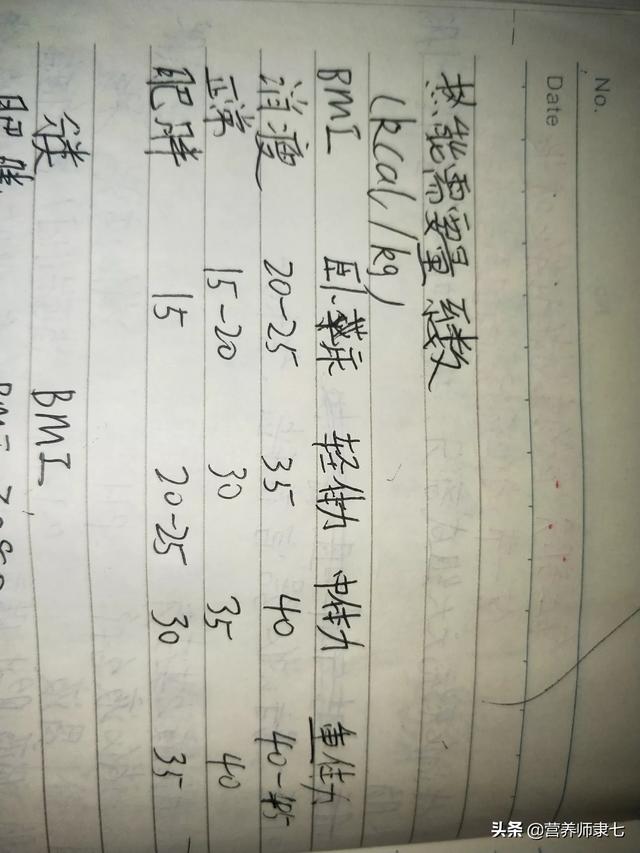 No.
Date
热能需要量系数
(kcal/kg)
BMI 卧床 轻体力 中体力 重体力
消瘦 20-25 35 40 40-45
正常 15-20 30 35 40
肥胖 15 20-25 30 35
BMI
肥胖
头条 @营养师隶七